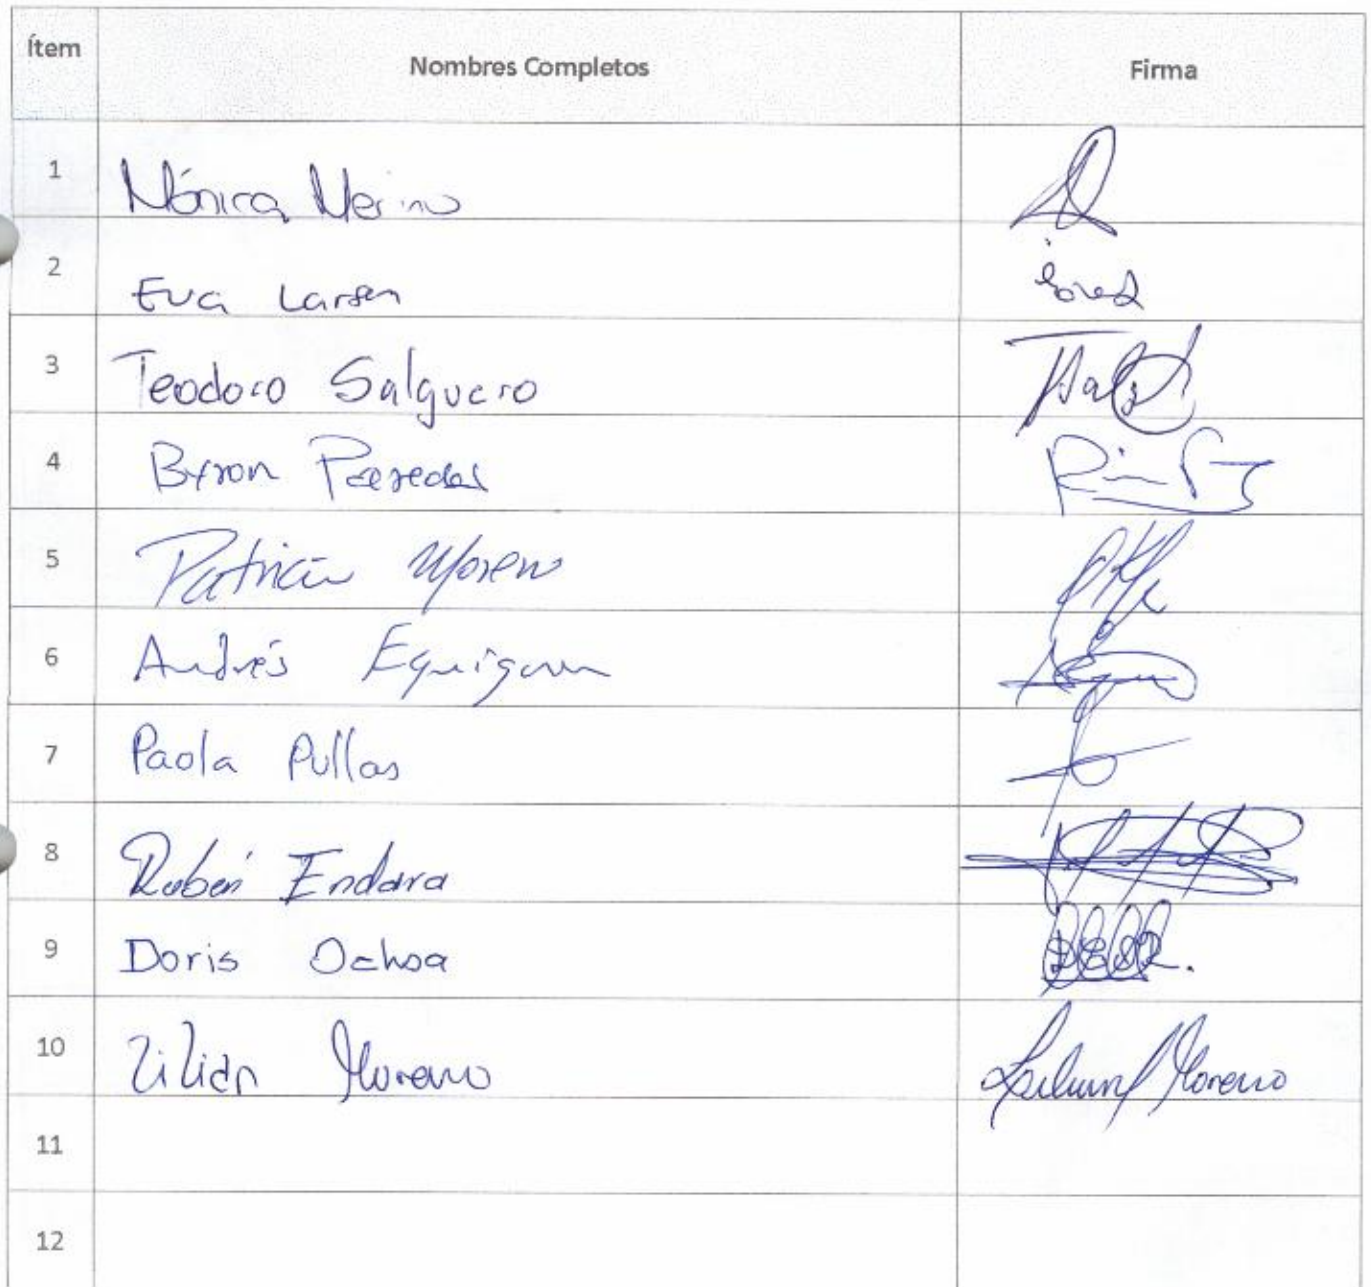 Ítem Nombres Completos Firma
1 Mónica Merino
2 Eva Larsen
3 Teodoro Salguero
4 Byron Paredes
5 Patricio Moreno
6 Andrés Eguiguren
7 Paola Pullas
8 Rubén Endara
9 Doris Ochoa
10 Lilian Moreno Moreno
11
12